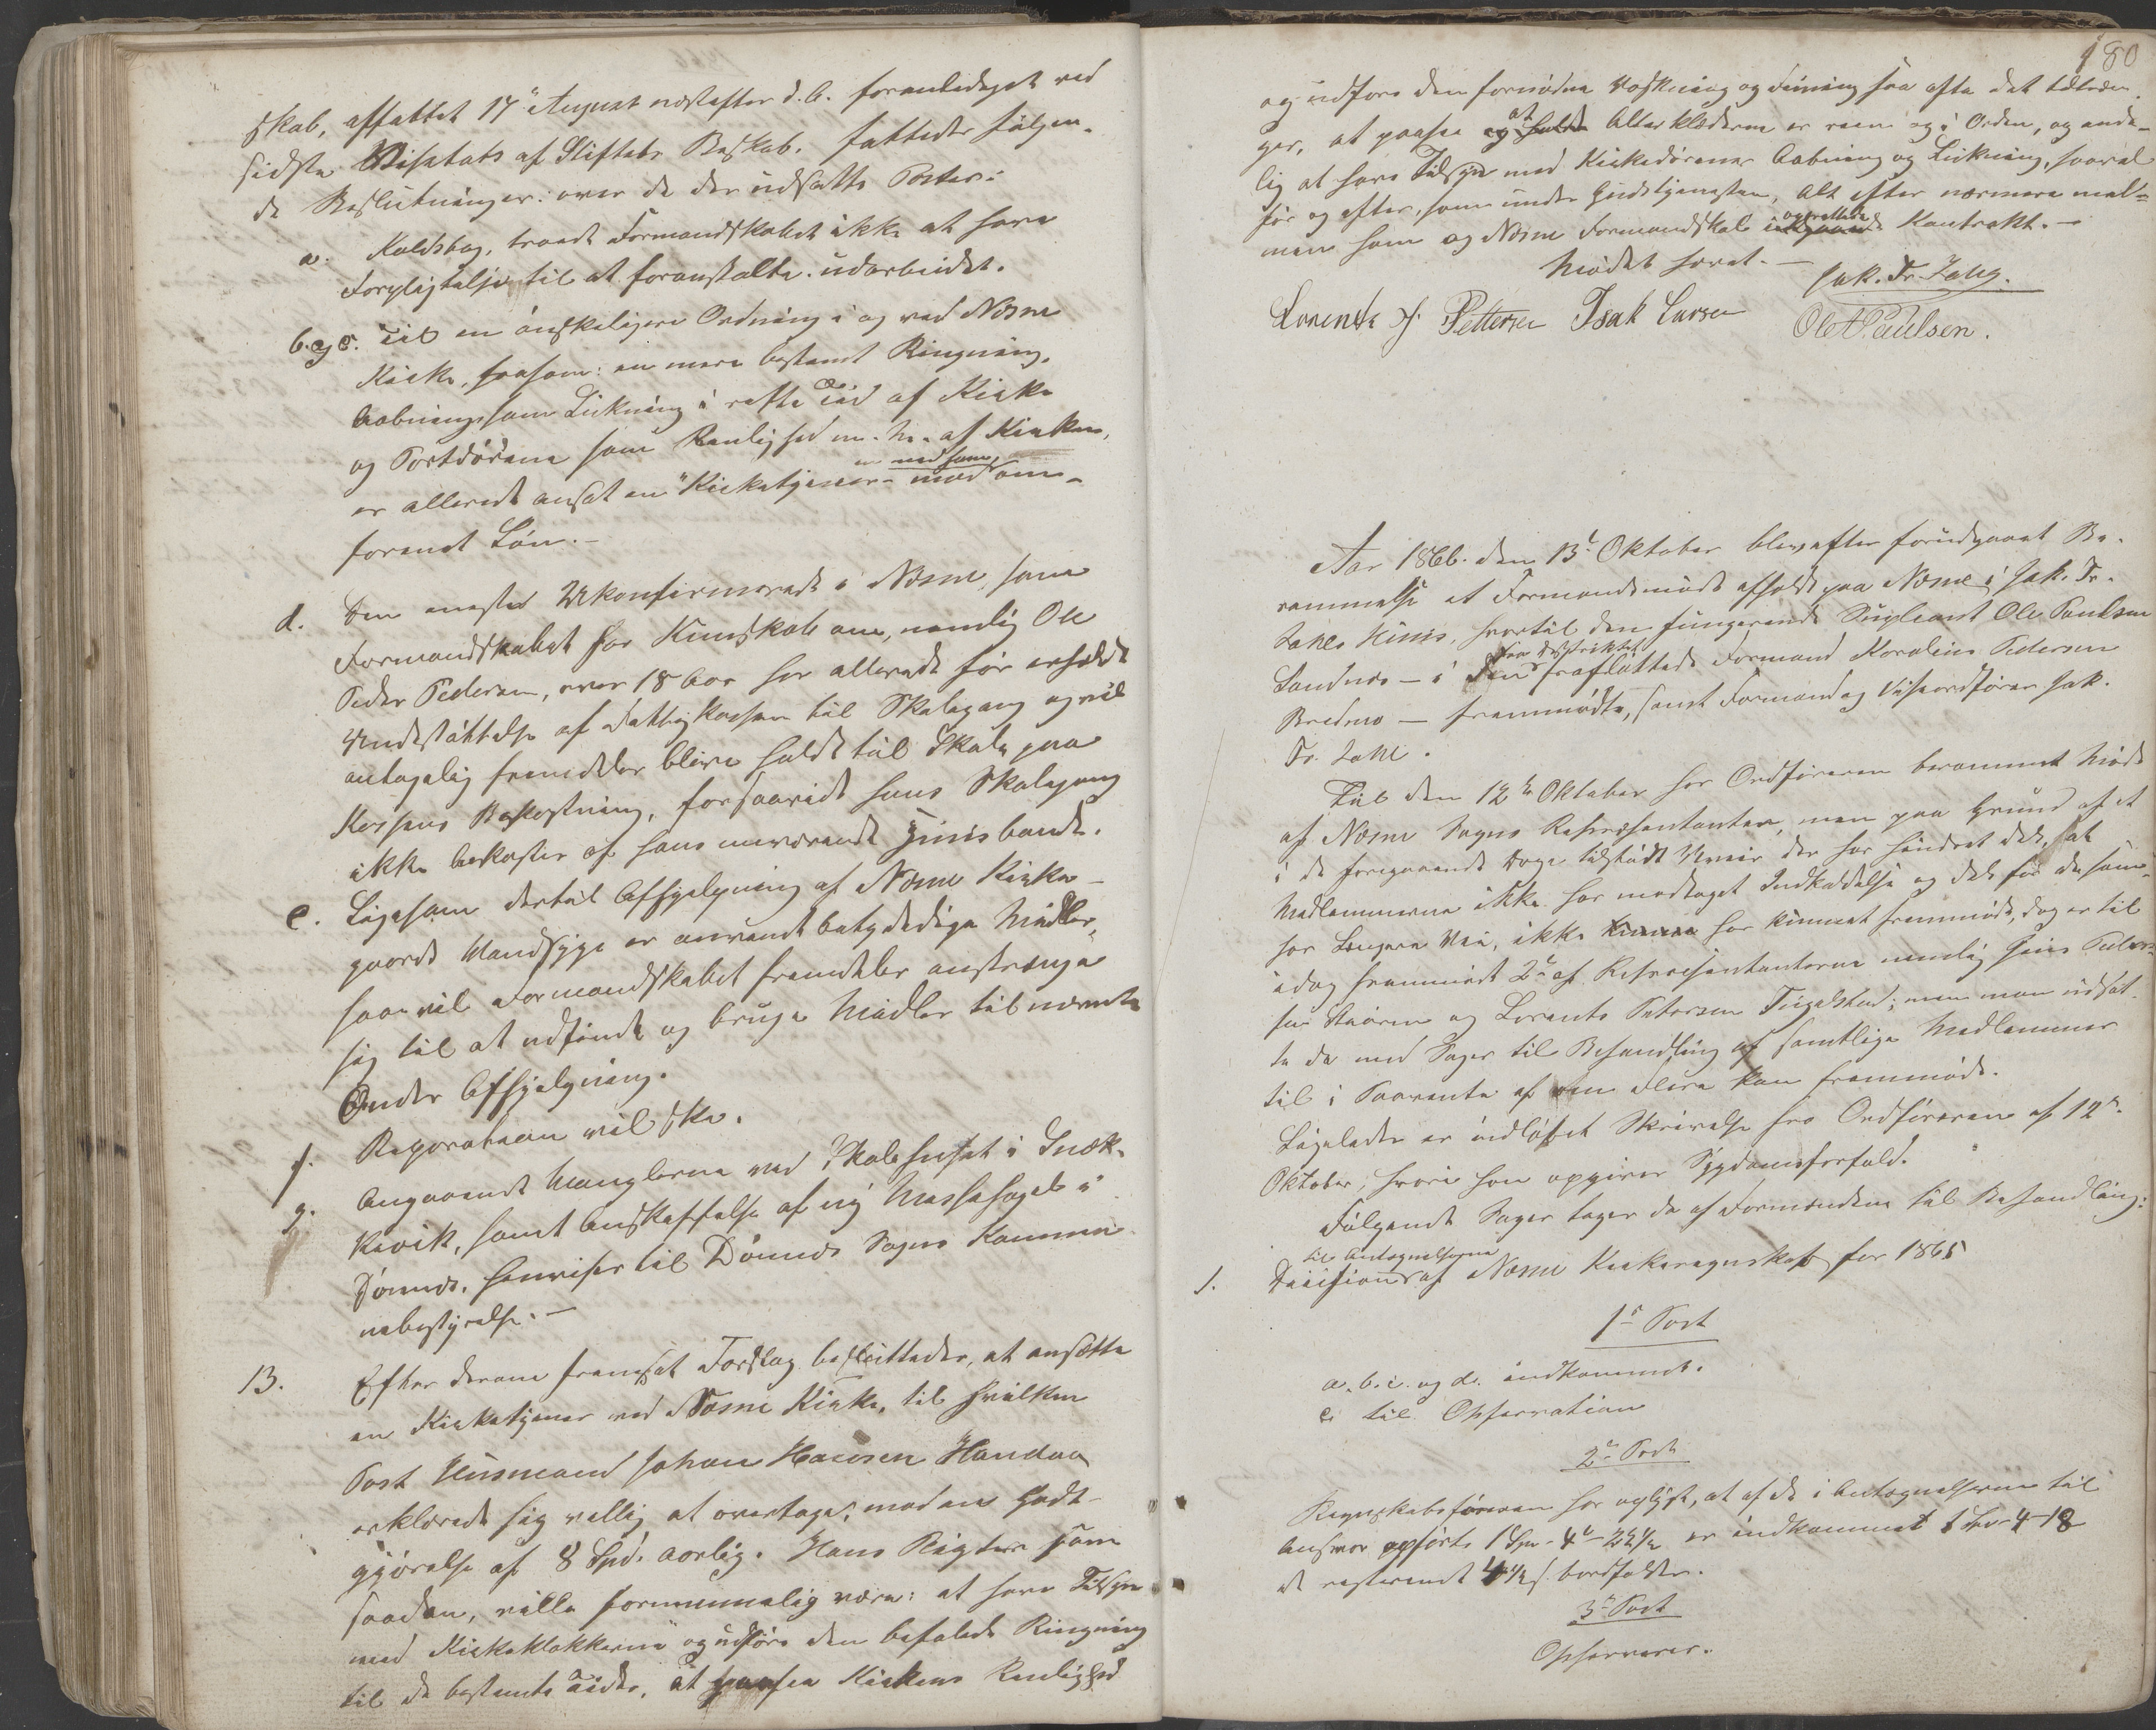 skab, affattet 17de August næstefter d. A. foranlediget ved
sidste Visitats af Stiftets Beskab. fattedes følgen-
de Beslutninger: over de der udsatte Poster:
a. Kaldsbog, troede Formandskabet ikke at have
Forpligtelse til at foranstalte udarbeidet.
b. og c. Til en ønskeligere Ordning i og ved Næsne
Kirke, saasom: en mere bestemt Ringning,
Aabning som Lukning i rette Tid af Kirke
og Portdørene som Renlighed m. m. af Kirken,
er allerede ansat en Kirketjener med om-
forenet Løn. –
d. Den eneste Ukonfirmerede i Næsne, som
Formandskabet har Kundskab om, nemlig Ole
Peder Pedersen, over 18 Aar har allerede før erholdt
Understøttelse af Fattigkassen til Skolegang og vil
antagelig fremdeles blive holdt til Skole paa
Kassens Bekostning, forsaavidt hans Skolegang
ikke bekostes af hans nuværende Huusbonde.
e. Ligesom der til Afhjelpning af Næsne Kirke-
gaards Vandsyge er anvendt betydelige Midler,
saa vil Formandskabet fremdeles anstrenge
sig til at udfinde og bruge Midler til nævnte
Ondes Afhjelpning.
f. Reparation vil ske.
g. Angaaende Manglerne ved Skolehuset i Snæk-
kevik, samt Anskaffelse af ny Messehagel i
Dønnes, henvises til Dønnes Sogns Kommu-
nebestyrelse. –
13. Efter derom fremsat Forslag besluttedes, at ansætte
en Kirketjener ved Næsne Kirke, til hvilken
Post Husmand Johan Hansen Handaa
erklærede sig villig at overtage, mod en Godt-
gjørelse af 8 Spd. aarlig. Hans Pligter som
saadan, ville fornemmelig være: at have Tilsyn
med Kirkeklokkerne og udføre den befalede Ringning
til de bestemte Tider, at paasee Kirkens Renlighed
180
og udføre den fornødne Vaskning og Feining saa ofte det tiltræn-
ger, at paasee at Alterklæderne er reene og i Orden, og ende-
lig at have Tilsyn med Kirkedørenes Aabning og Lukning, saavel
før og efter, som under Gudstjenesten, Alt efter nærmere mel-
lem ham og Næsne Formandskab oprettede Kontrakt. –
Mødet hævet. – Jak. Fr. Zahl.
Lorents J. Pettersen Isak Larsen Ole A. Paulsen.
Aar 1866. den 13de Oktober blev efter forudgaaet Be-
rammelse et Formandsmøde afholdt paa Næsne i Jak. Fr.
Zahls Huus, hvortil den fungerende Supleant Ole Paulsen
Sandnes – i den fra Distriktet fraflyttede Formand Kornelius Pedersen
Brednes – fremmødte, samt Formand og Viseordfører Jak.
Fr. Zahl.
Til den 12te Oktober har Ordføreren berammet Møde
af Næsne Sogns Repræsentanter, men paa Grund af et
i de foregaaende Dage tilstødt Uveir der har hindret dels, at
Medlemmerne ikke har modtaget Indkaldelse og dels for de som
har Længere Vei, ikke har kunnet fremmøde, dog er til
idag fremmødt 2de af Repræsentanterne nemlig Jens Peder-
sen og Lorents Petersen; men man udsat-
te da med Sager til Behandling af samtlige Medlemmer
til i Paavente af om Flere kan fremmøde.
Ligeledes er indløbet Skrivelse fra Ordføreren af 12te
Oktober, hvori han opgiver Sygdomsforfald.
Følgende Sager tages da af Formændene til Behandling:
1. Decisioner til Antegnelserne af Næsne Kirkeregnskab for 1865
1ste Post
a. b. c. og d. indkommet.
e. til Observation
2den Post
Regnskabsføreren har oplyst, at af de i Antegnelserne til
Ansvar opførte 1 Spd - 4 - 22½ er indkommet 1 Spd - 4 - 18
de resterende 4½ s. bortfalder.
3die Post
Observeres.